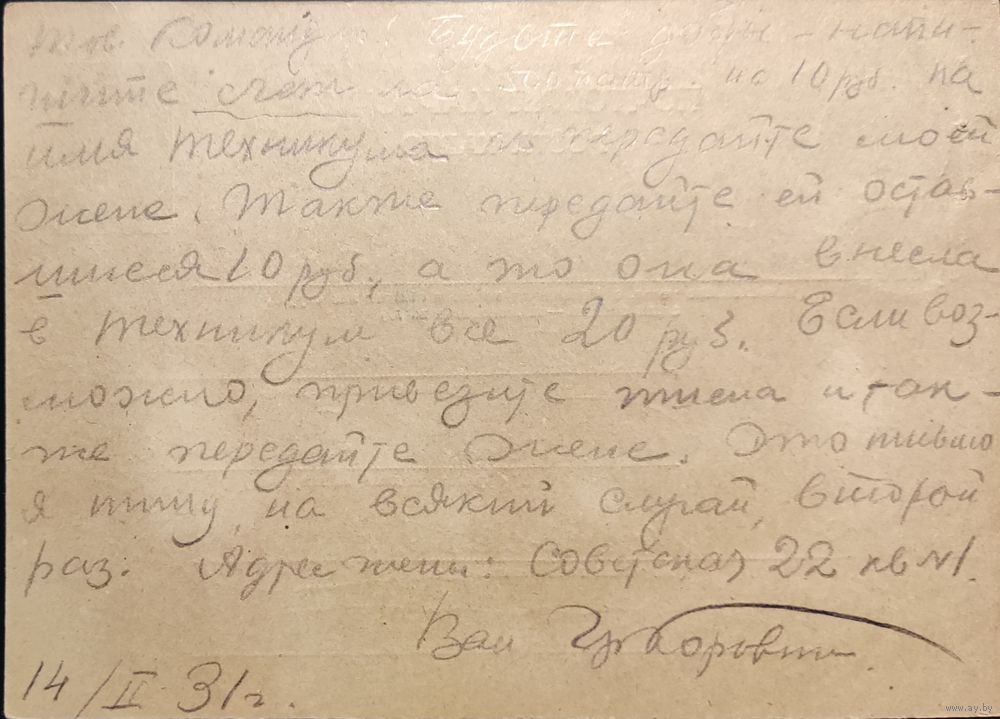 Тов. Команд Будьте добры - напи-
шите счет на на 10 руб. на
имя техникума и передайте моей
жене. Также передайте ей остав-
шиеся 10 руб., а то она внесла
в техникум все 20 руб. Если воз-
можно, привезите писма и так-
же передайте жене. Это письмо
я пишу на всякий случай, второй
раз. Адрес жены: Советская 22 кв №1.
Ваш
14/II 31 г.
www.ay.by